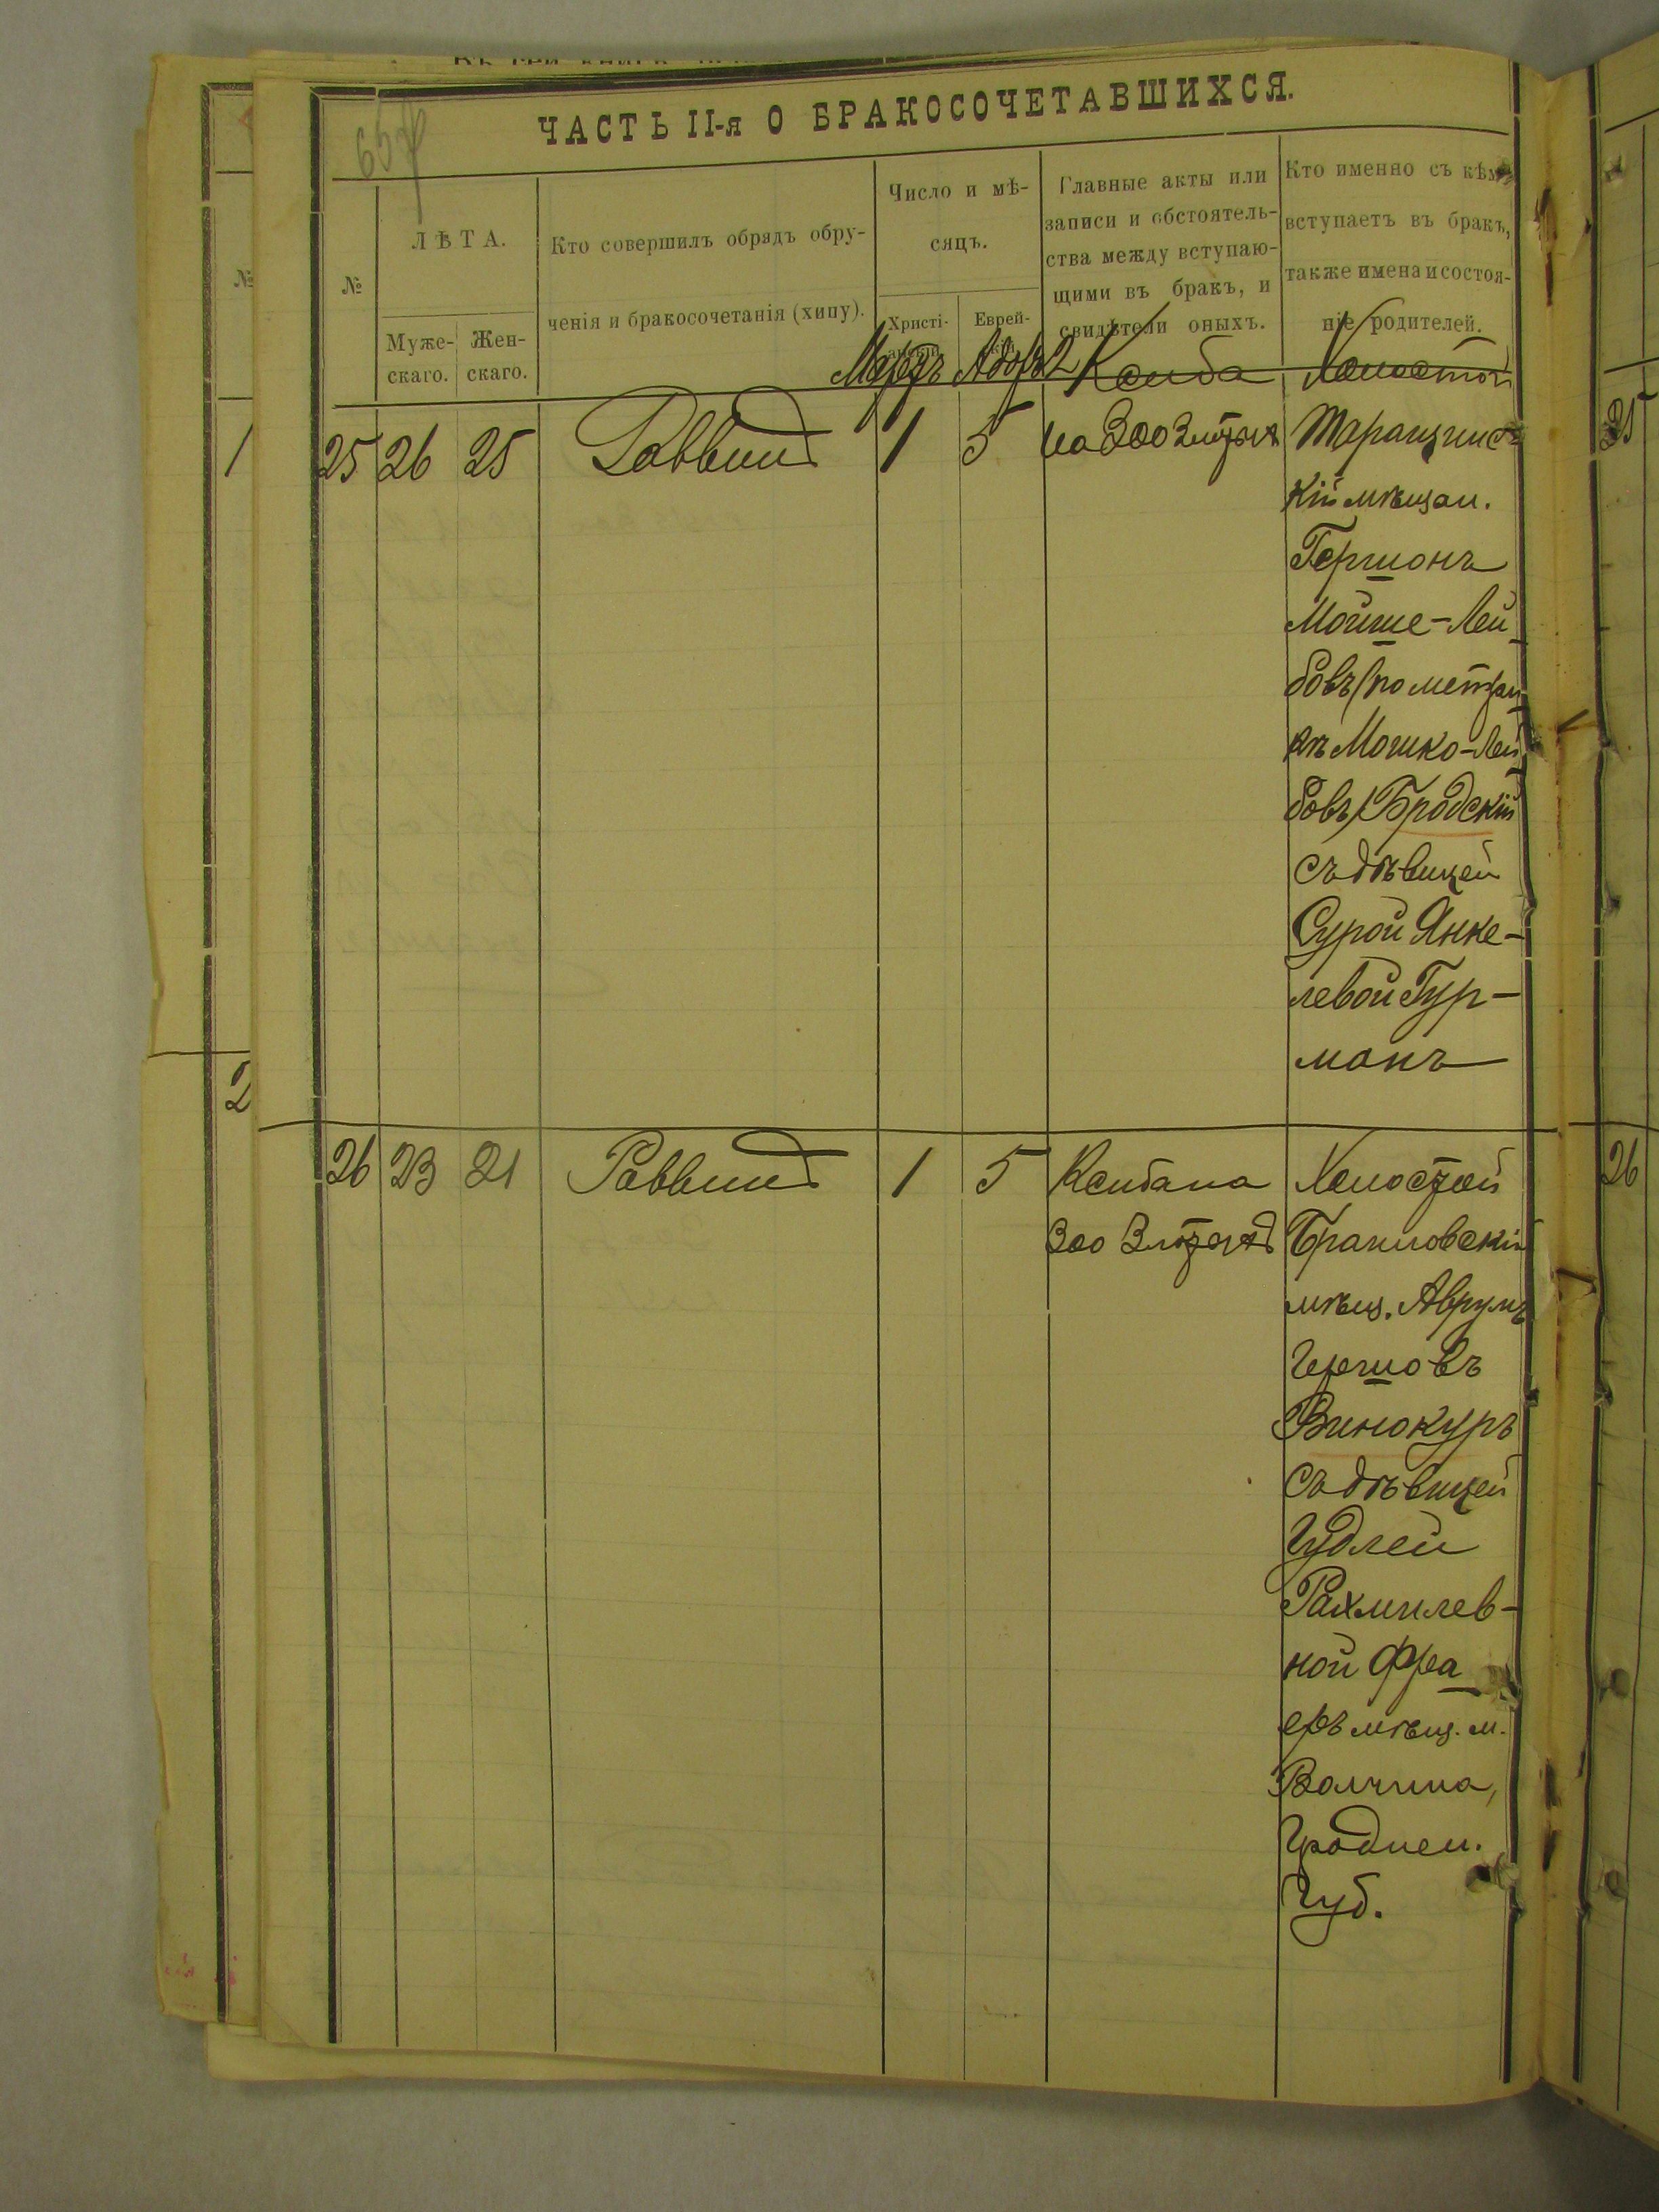 ЧАСТЬ II-я О БРАКОСОЧЕТАВШИХСЯ.
№
ЛѢТА.
Муже-
скаго.
Жен-
скаго.
Кто совершилъ обрядъ обру-
ченія и бракосочетанія (хипу).
Число и мѣ-
сяцъ.
Христі-
Еврей-
Главные акты или
записи и обстоятель-
ства между вступаю-
щими въ бракъ, и
свидѣтели оныхъ.
Кто именно съ кѣмъ
вступаетъ въ бракъ,
также имена и состоя-
ніе родителей.
Мартъ
25 26 25 Раввинъ 1 5
Ксиба
на 300 злотыхъ
Холостой
Таращанс-
кій мѣщан.
Гершонъ
Мойше-Лей-
бовъ (по метри
кѣ Мошко-Лей
бовъ) Бродскій
съ дѣвицей
Сурой Янке-
левой Гур-
манъ
26 23 21 Раввинъ 1 5
Ксиба на
300 злотыхъ
Холостой
Браиловскій
мѣщ. Аврумъ
Гершовъ
Винокуръ
съ дѣвицей
Гудлей
Рахмилев-
ной
мѣщ. м.
Волчина,
Гроднен.
Губ.
№
1
2
25
26